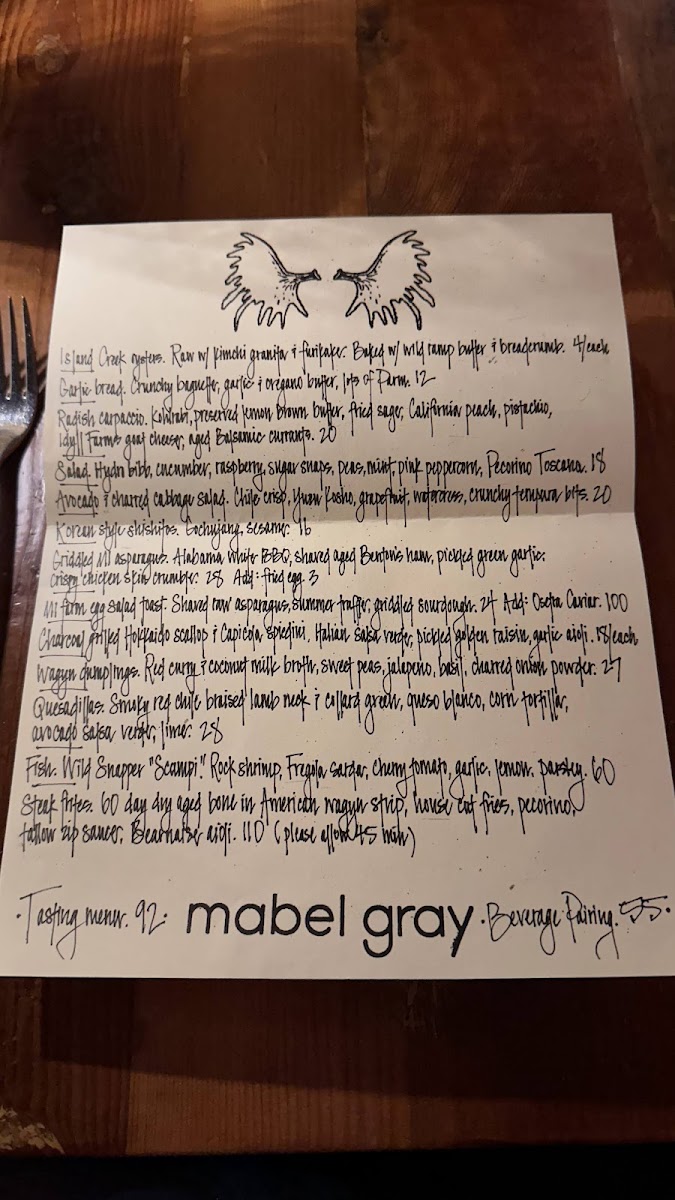 Island Creek oysters. Raw w/ kimchi granita & furikake. Baked w/ wild ramp butter & breadcrumb. 4/each
Garlic bread. Crunchy baguette, garlic & oregano butter, lots of Parm. 12
Radish carpaccio. Kohlrabi, preserved lemon, brown butter, fried sage, California peach, pistachio,
Idyll Farms goat cheese, aged Balsamic currants. 20
Salad. Hydro bibb, cucumber, raspberry, sugar snaps, peas, mint, pink peppercorn, Pecorino Toscana. 18
Avocado & charred cabbage salad. Chile crisp, Yuzu Kosho, grapefruit, watercress, crunchy tempura bits. 20
Korean style shishitos. Gochujang, sesame. 16
Griddled MI asparagus. Alabama white BBQ, shaved aged Benton's ham, pickled green garlic,
crispy chicken skin crumble. 28 Add: fried egg. 3
MI farm egg salad toast. Shaved raw asparagus, summer truffle, griddled sourdough. 24 Add: Osetra Caviar. 100
Charcoal grilled Hokkaido scallop & Capicola spiedini, Italian salsa verde, pickled golden raisin, garlic aioli. 18/each
Wagyu dumplings. Red curry & coconut milk broth, sweet peas, jalapeño, basil, charred onion powder. 27
Quesadillas. Smoky red chile braised lamb neck & collard green, queso blanco, corn tortilla,
avocado salsa verde, lime. 28
Fish. Wild Snapper "Scampi." Rock shrimp, Fregola sarda, cherry tomato, garlic, lemon, parsley. 60
Steak frites. 60 day dry aged bone in American wagyu strip, house cut fries, pecorino,
tallow zip sauce, Bearnaise aioli. 110 (please allow 45 min)
·Tasting menu. 92· mabel gray ·Beverage Pairing. 55·